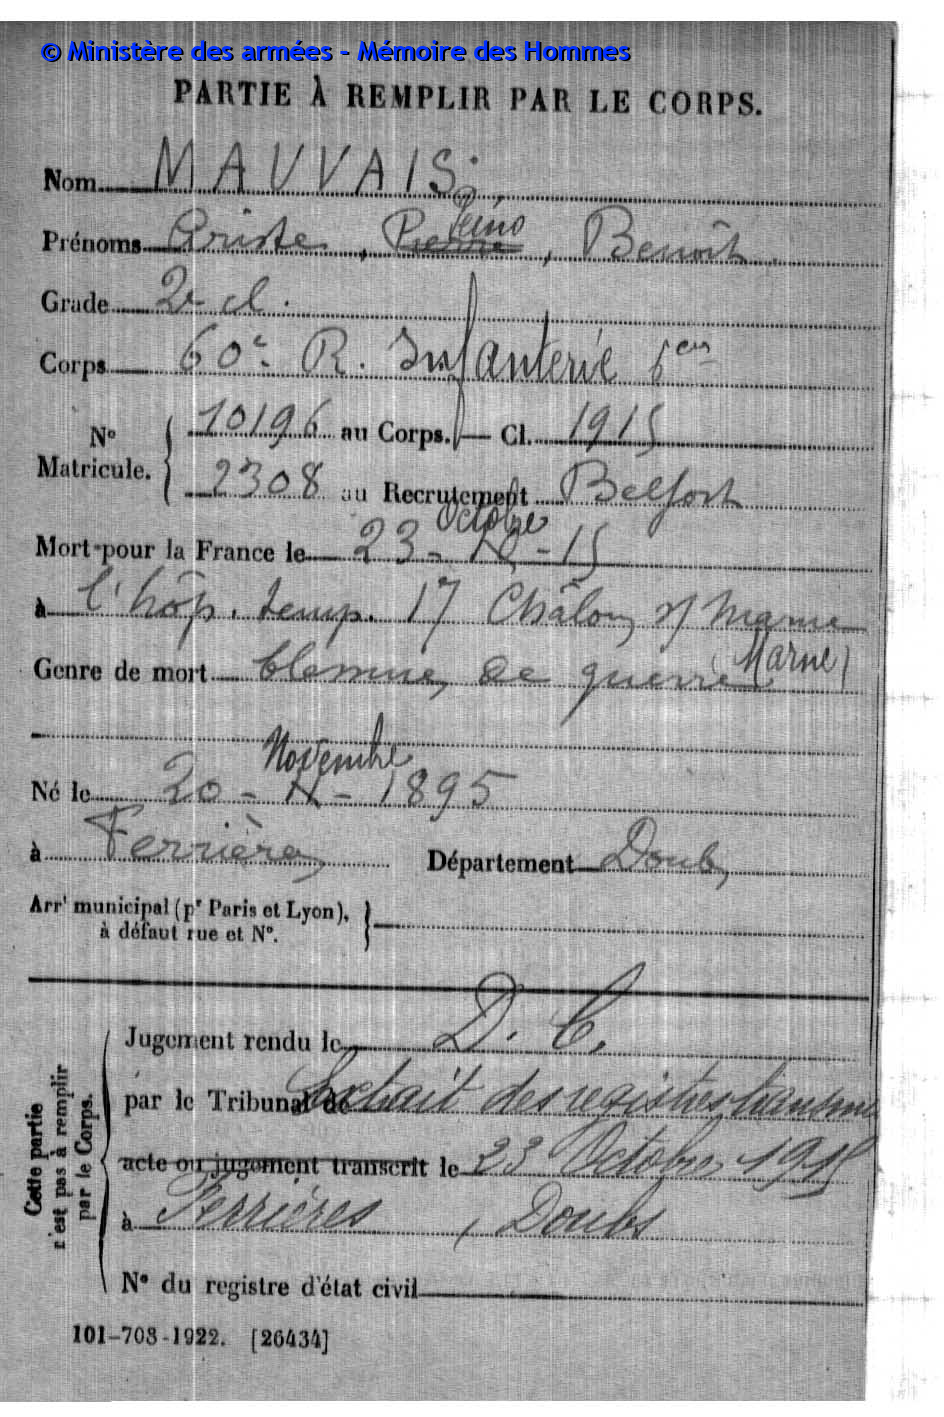 © Ministère des armées - Mémoire des Hommes
PARTIE À REMPLIR PAR LE CORPS.
Nom MAUVAIS.
Prino
Prénoms Ariste, Pierre, Benoît.
Grade 2e cl.
Corps 60e R. Infanterie 6 cie
No Matricule. { 10196 au Corps. — Cl. 1915
2308 au Recrutement Belfort
Octobre
Mort pour la France le 23 - 10 - 15
à l'hôp. temp. 17 Châlons s/ Marne
(Marne)
Genre de mort blessures de guerre
Novembre
Né le 20 - 11 - 1895
à Ferrières Département Doubs
Arrt municipal (pr Paris et Lyon), à défaut rue et No. }
Cette partie n'est pas à remplir par le Corps. {
Jugement rendu le D. C.
par le Tribunal de Extrait des registres transmis
acte ou jugement transcrit le 23 Octobre 1915
à Ferrières, Doubs
No du registre d'état civil
101-708-1922. [26434]